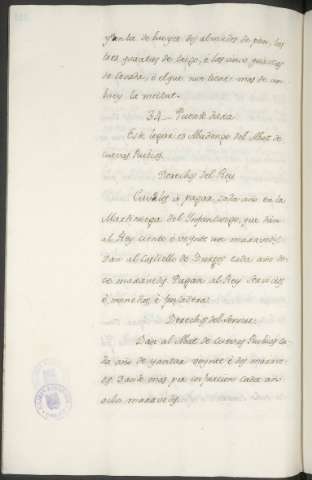 Yunta de bueyes dos almudes de pan, los
tres quartos de trigo, e los cinco quartos
de cevada, e el que non toviere mas de un
buey la meitat.
34 Puente dura
Este logar es Abadengo del Abat de
Cuevas Rubias.
Derechos del Rey
Caveles a pagar cada año en la
Martiniega del Infantazgo, que dan
al Rey ciento e veynte un maravedis.
Dan al Castiello de Burgos cada año do-
ce maravedis. Pagan al Rey servicios
e monedas, e fonsadera.
Derechos del Señor
Dan al Abat de Cuevas Rubias ca-
da año de yantar veynte e dos marave-
dis. Danle mas por infurcion cada año
ocho maravedis.